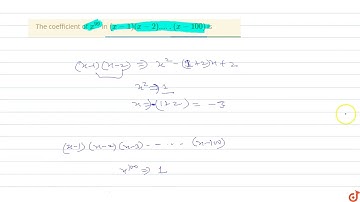 The coefficient of x⁹⁹ in (x − 1)(x − 2)......(x − 100) is
(x-1)(x-2) ⇒ x² - (1+2)x + 2
x² ⇒ 1
x ⇒ -(1+2) = -3
(x-1)(x-2)(x-3) - - - . . . (x-100)
x¹⁰⁰ ⇒ 1